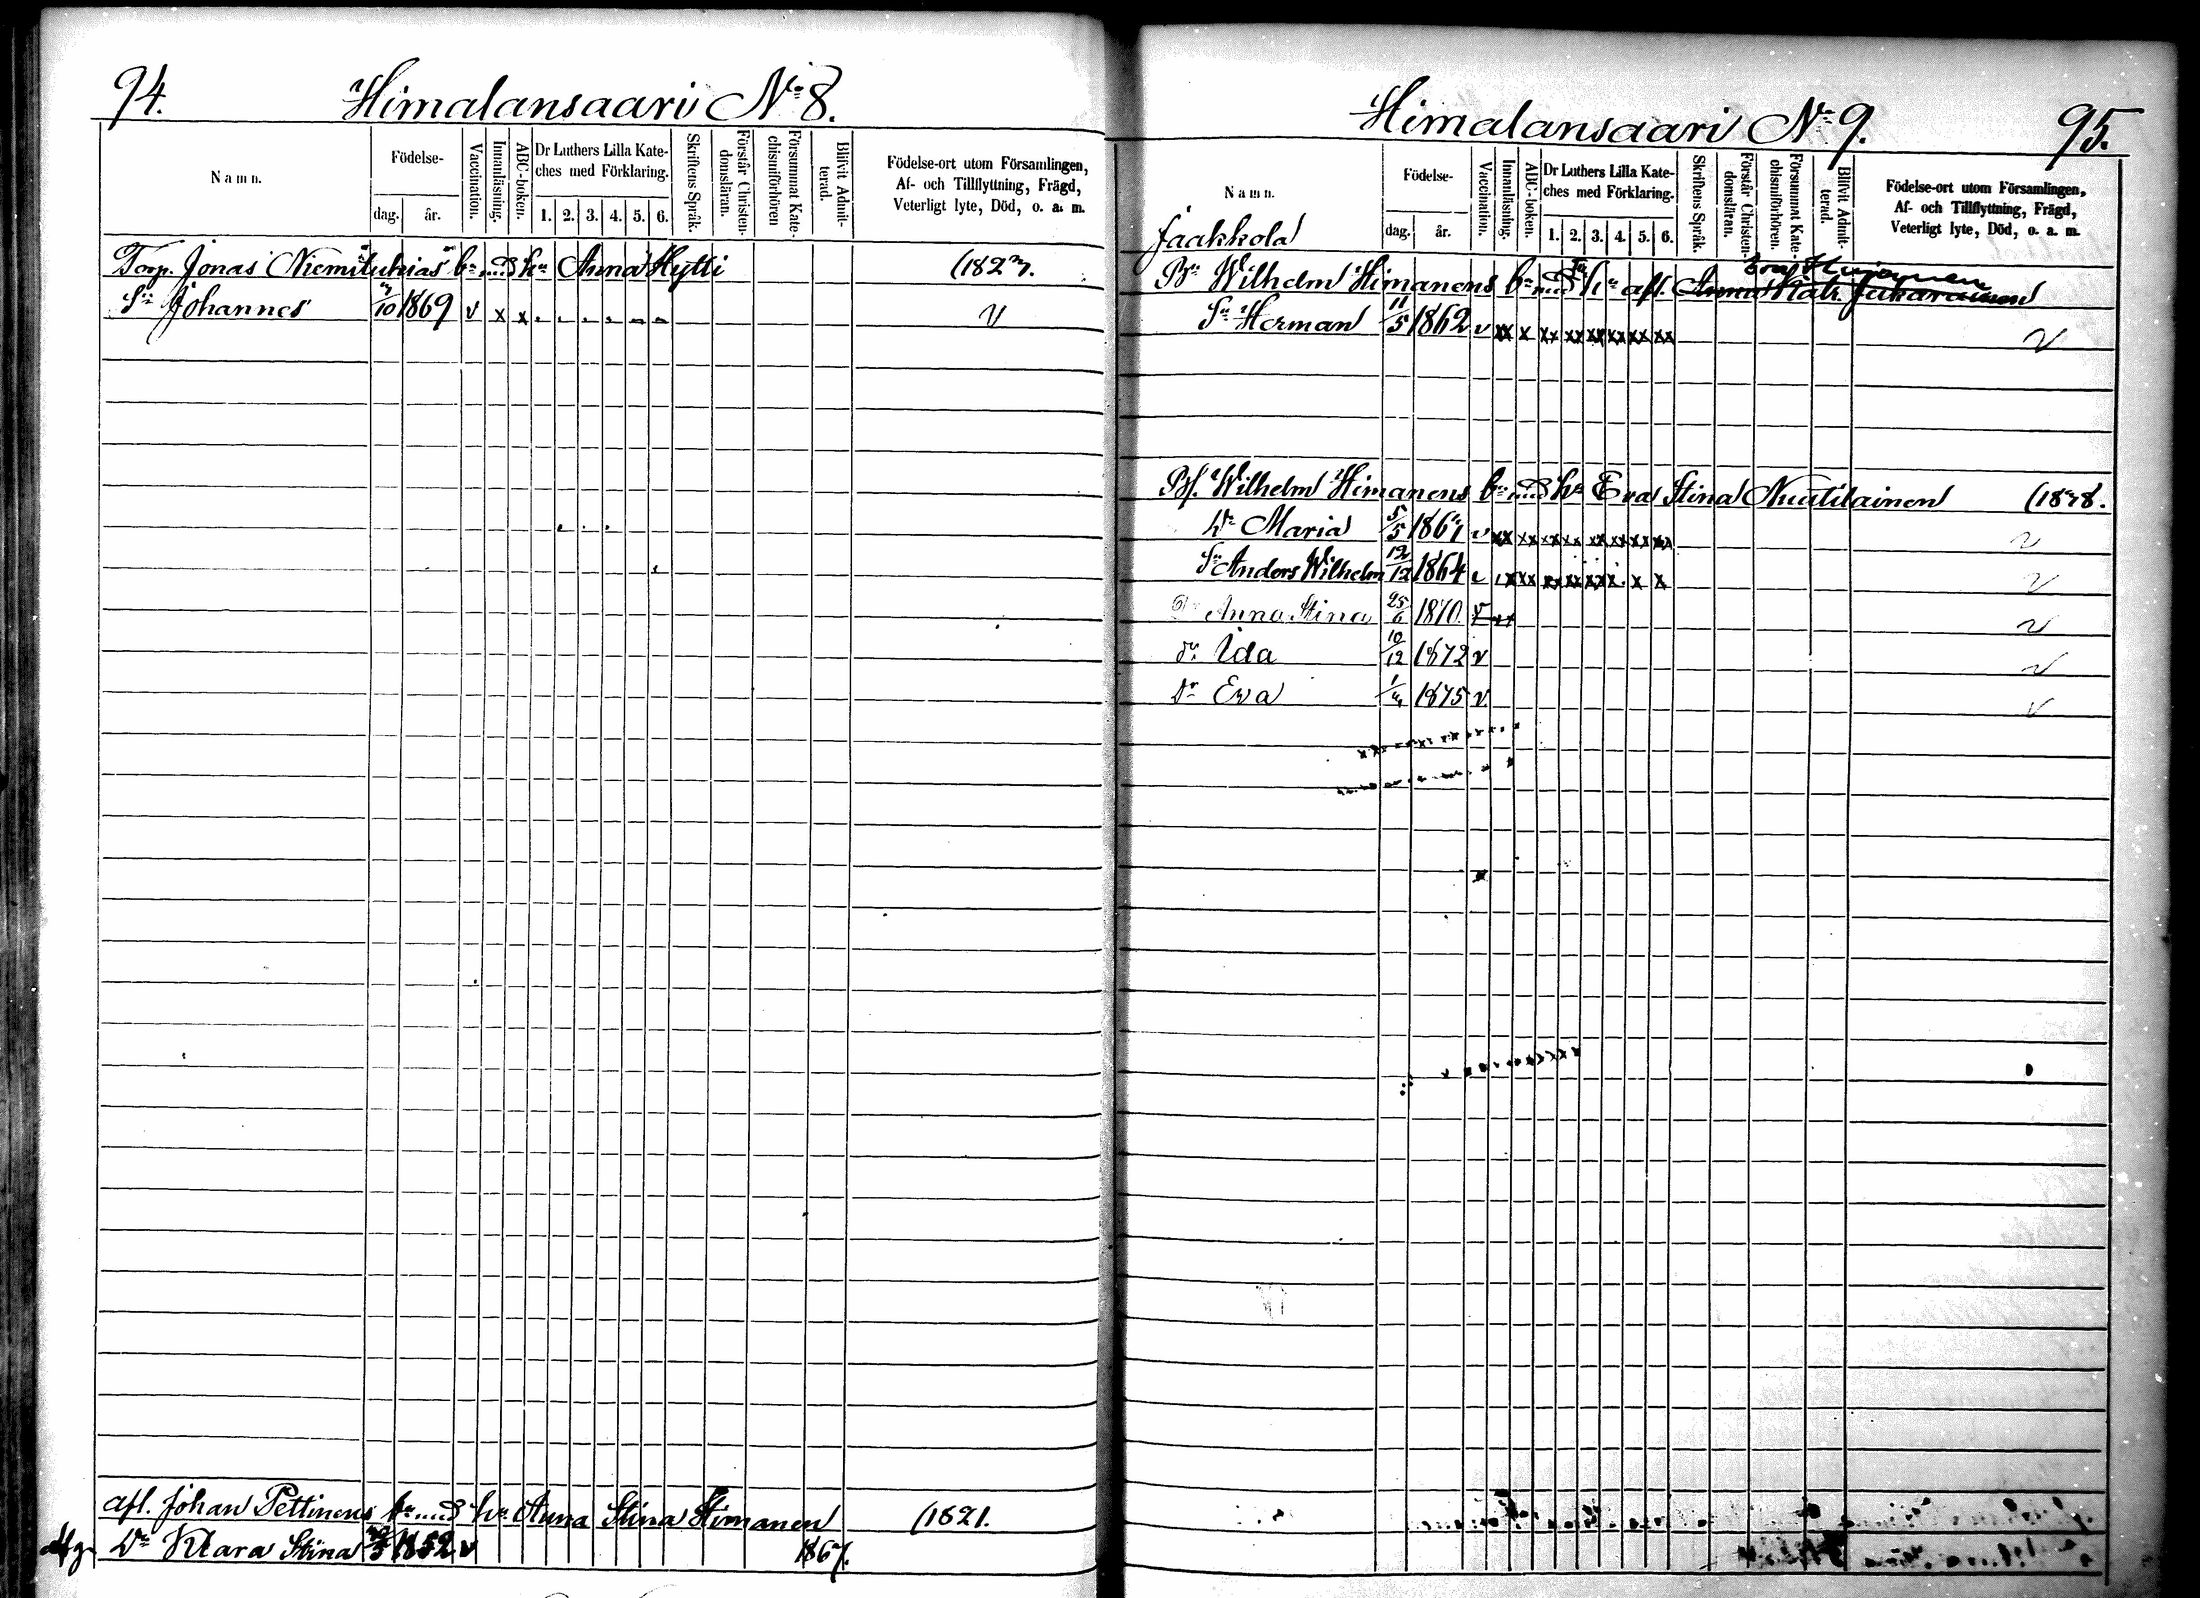 94.
Himalansaari No 8.
Namn.
Födelse-
dag. år.
Vaccination.
Innanläsning.
ABC-boken.
Dr Luthers Lilla Kate-
ches med Förklaring.
1. 2. 3. 4. 5. 6.
Skriftens Språk.
Förstår Christen-
domsläran.
Försummat Kate-
chismiförhören
Blifvit Admit-
terad.
Födelse-ort utom Församlingen,
Af- och Tillflyttning, Frägd,
Veterligt lyte, Död, o. a. m.
Torp. Jonas b:n med h:u Anna Hytti (1827.
S:n Johannes 10 1869 v x x
afl. Johan Pettinens b:n med h:u Anna Stina Himanen (1821.
D:r Klara Stina 5 1852 v 1867.
Himalansaari No 9.
95.
Namn.
Födelse-
dag. år.
Vaccination.
Innanläsning.
ABC-boken.
Dr Luthers Lilla Kate-
ches med Förklaring.
1. 2. 3. 4. 5. 6.
Skriftens Språk.
Förstår Christen-
domsläran.
Försummat Kate-
chismiförhören.
Blifvit Admit-
terad.
Födelse-ort utom Församlingen,
Af- och Tillflyttning, Frägd,
Veterligt lyte, Död, o. a. m.
Jaakkola
Wilhelm Himanens b:n med h:u afl. Eva
S:n Herman 11/5 1862 v xx x xx xx xx xx xx xx v
Wilhelm Himanens b:n med h:u Eva Stina Nuutilainen (1878.
D:r Maria 5/5 1867 v xx xx xx xx xx xx xx xx v
S:n Anders Wilhelm 12/12 1864 v
D:r Anna Stina 25/6 1870. v v
D:r Ida 10/12 1872 v v
D:r Eva 1875 v v